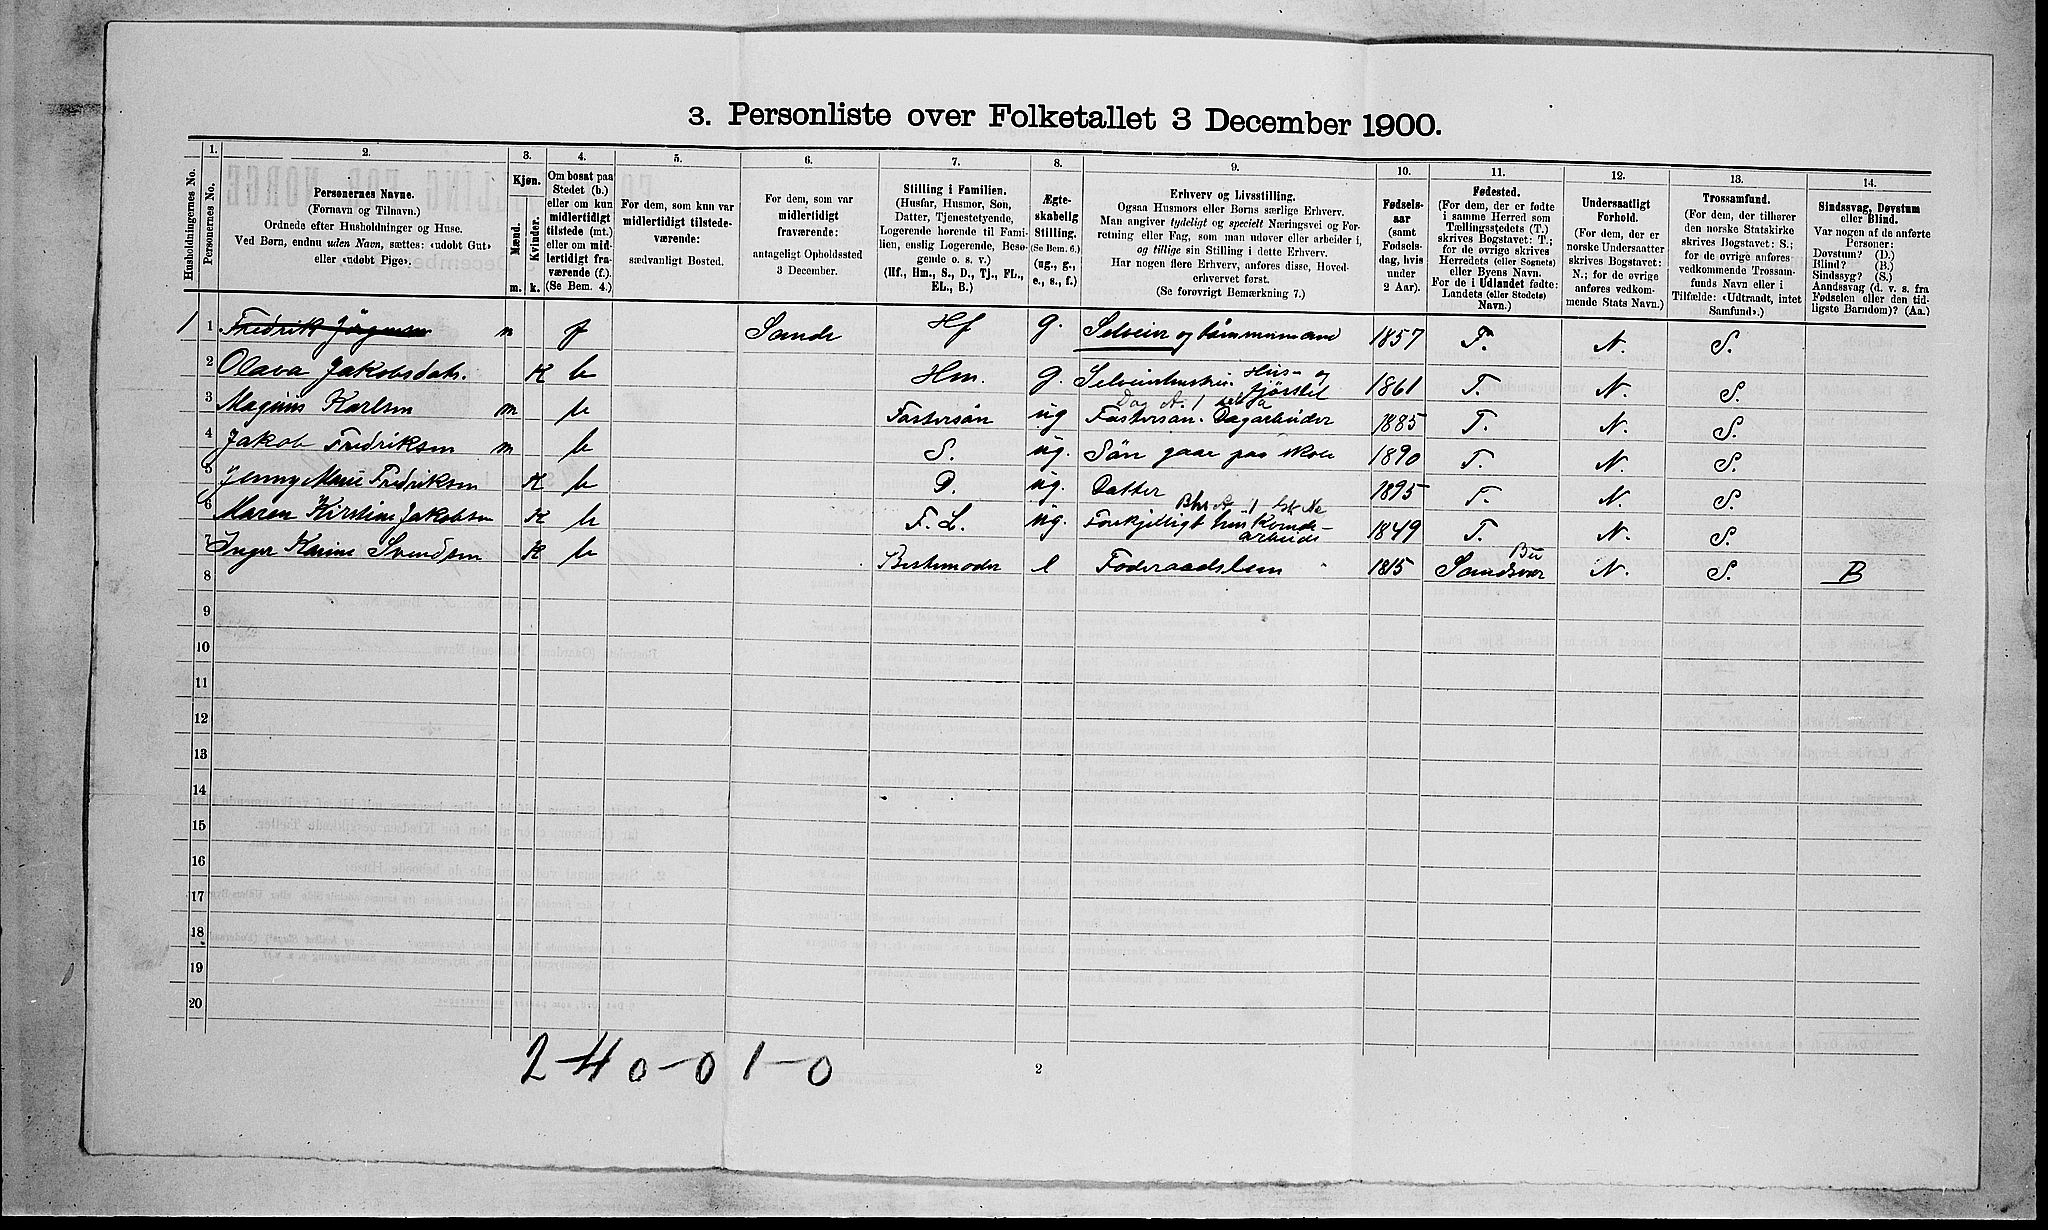 3. Personliste over Folketallet 3 December 1900.
Husholdningernes No.
1.
Personernes No.
2.
Personernes Navne.
(Fornavn og Tilnavn.)
Ordnede efter Husholdninger og Huse.
Ved Børn, endnu uden Navn, sættes: «udøbt Gut»
eller «udøbt Pige».
3.
Kjøn.
Mænd.
Kvinder.
m. k.
4.
Om bosat paa
Stedet (b.)
eller om kun
midlertidigt
tilstede (mt.)
eller om mid-
lertidigt fra-
værende (f.).
(Se Bem. 4.)
5.
For dem, som kun var
midlertidigt tilstede-
værende:
sædvanligt Bosted.
6.
For dem, som var
midlertidigt
fraværende:
antageligt Opholdssted
3 December.
7.
Stilling i Familien.
(Husfar, Husmor, Søn,
Datter, Tjenestetyende,
Logerende hørende til Fami-
lien, enslig Logerende, Besø-
gende o. s. v.)
(Hf., Hm., S., D., Tj., FL.,
EL., B.)
8.
Ægte-
skabelig
Stilling.
(Se Bem. 6.)
(ug., g.,
e., s., f.)
9.
Erhverv og Livsstilling.
Ogsaa Husmors eller Børns særlige Erhverv.
Man angiver tydeligt og specielt Næringsvei og For-
retning eller Fag, som man udøver eller arbeider i,
og tillige sin Stilling i dette Erhverv.
Har nogen flere Erhverv, anføres disse, Hoved-
erhvervet først.
(Se forøvrigt Bemærkning 7.)
10.
Fødsels-
aar
(samt
Fødsels-
dag, hvis
under
2 Aar).
11.
Fødested.
(For dem, der er fødte
i samme Herred som
Tællingsstedets (T.)
skrives Bogstavet: T.;
for de øvrige skrives
Herredets (eller Sognets)
eller Byens Navn.
For de i Udlandet fødte:
Landets (eller Stedets)
Navn.)
12.
Undersaatligt
Forhold.
(For dem, der er
norske Undersaatter
skrives Bogstavet:
N.; for de øvrige
anføres vedkom-
mende Stats Navn.)
13.
Trossamfund.
(For dem, der tilhører
den norske Statskirke
skrives Bogstavet: S.;
for de øvrige anføres
vedkommende Trossam-
funds Navn eller i
Tilfælde: «Udtraadt, intet
Samfund».)
14.
Sindssvag, Døvstum
eller Blind.
Var nogen af de anførte
Personer:
Døvstum? (D.)
Blind? (B.)
Sindssyg? (S.)
Aandssvag (d. v. s. fra
Fødselen eller den tid-
ligste Barndom)? (Aa.)
1 1 Fredrik Jörgensen m f Sande Hf g. Selveier og tömmermand 1857 T. N. S.
2 Olava Jakobsdatr. K b Hm. g. Selveierhustru. Hus- og fjösstel 1861 T. N. S.
3 Magnus Karlsen m b Fostersön ug Fostersön. Dagarbeider 1885 T. N. S.
4 Jakob Fredriksen m b S. ug. Sön gaar paa skole 1890 T. N. S.
5 Jenny Marie Fredriksen K b D. ug. Datter 1895 T. N. S.
6 Maren Kirstine Jakobsen K b F. L. ug. Forskjelligt huskvinde-
arbeide 1849 T. N. S.
7 Inger Karine Svendsen K b Bestemoder e Föderaadskvin 1815 Sandsvær Bu N. S. B
8
9
10
11
12
13
14
15
16
17
18
19
20
2-4 0-0 1-0
2